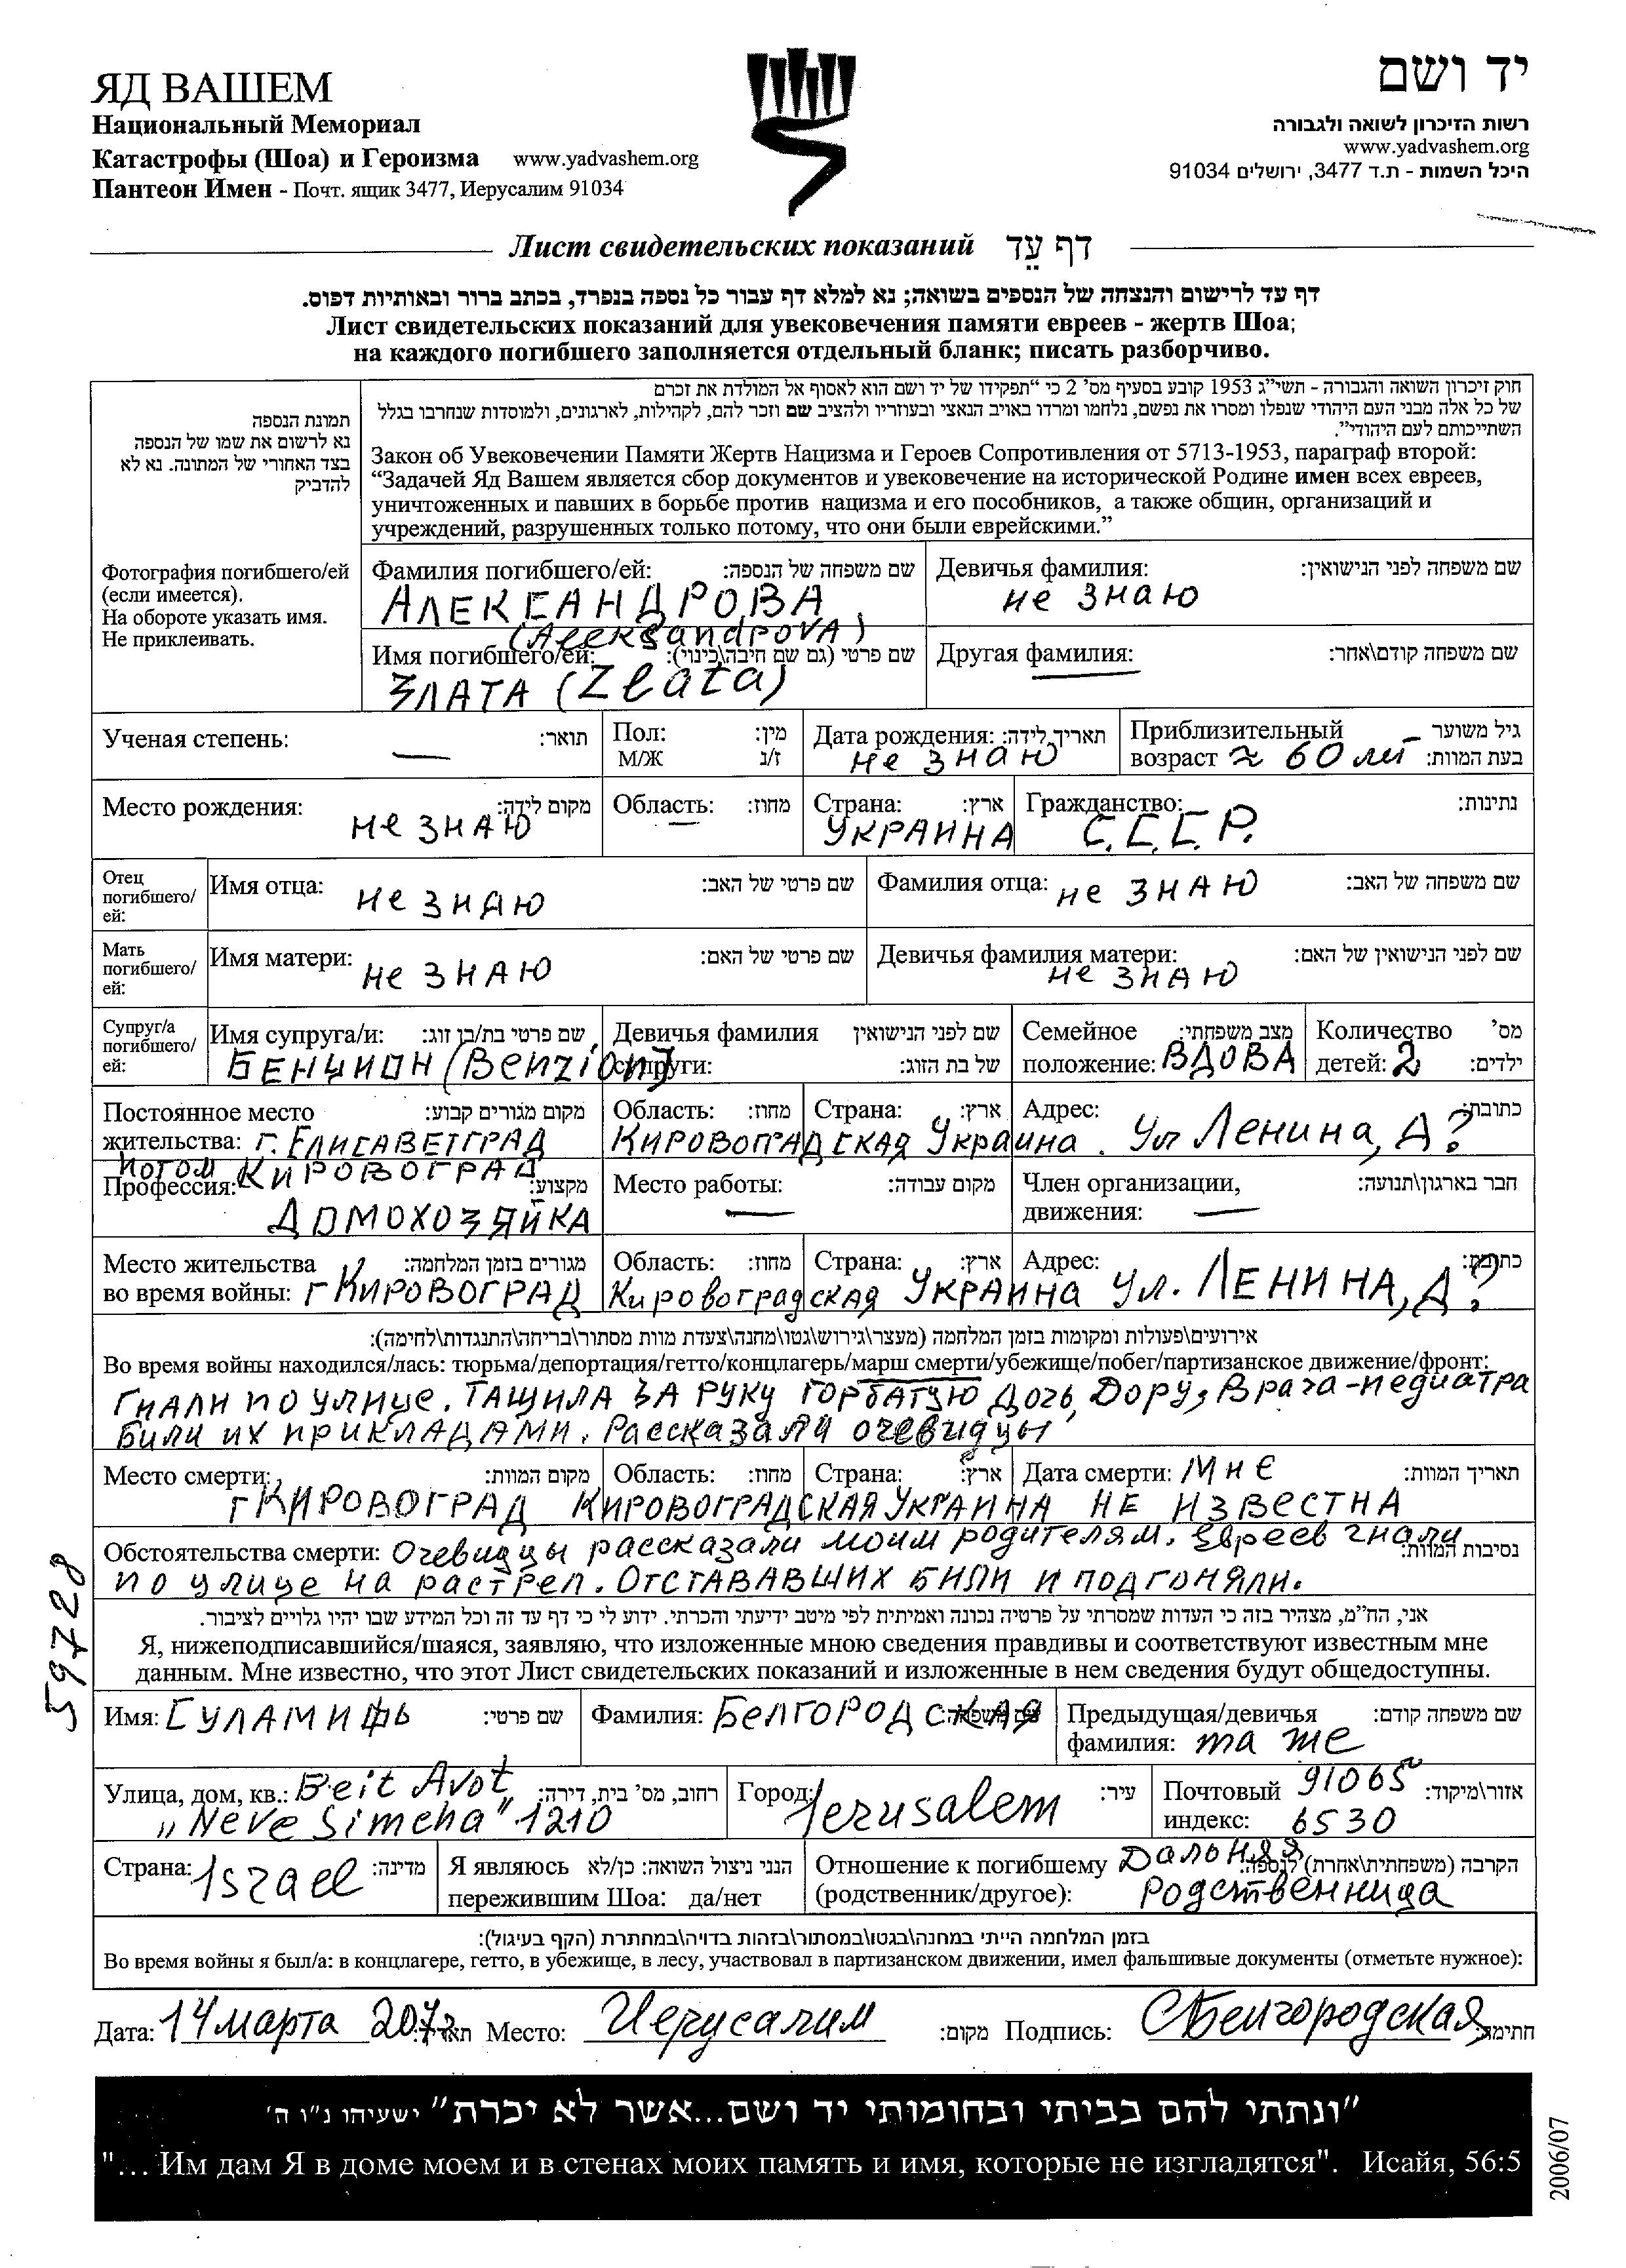 ЯД ВАШЕМ
Национальный Мемориал
Катастрофы (Шоа) и Героизма www.yadvashem.org
Пантеон Имен - Почт. ящик 3477, Иерусалим 91034
יד ושם
רשות הזיכרון לשואה ולגבורה
www.yadvashem.org
היכל השמות - ת.ד 3477, ירושלים 91034
Лист свидетельских показаний דף עֵד
דף עד לרישום והנצחה של הנספים בשואה; נא למלא דף עבור כל נספה בנפרד, בכתב ברור ובאותיות דפוס.
Лист свидетельских показаний для увековечения памяти евреев - жертв Шоа;
на каждого погибшего заполняется отдельный бланк; писать разборчиво.
תמונת הנספה
נא לרשום את שמו של הנספה
בצד האחורי של המתונה. נא לא
להדביק
Фотография погибшего/ей
(если имеется).
На обороте указать имя.
Не приклеивать.
חוק זיכרון השואה והגבורה - תשי"ג 1953 קובע בסעיף מס' 2 כי "תפקידו של יד ושם הוא לאסוף אל המולדת את זכרם
של כל אלה מבני העם היהודי שנפלו ומסרו את נפשם, נלחמו ומרדו באויב הנאצי ובעוזריו ולהציב שם וזכר להם, לקהילות, לארגונים, ולמוסדות שנחרבו בגלל
השתייכותם לעם היהודי".
Закон об Увековечении Памяти Жертв Нацизма и Героев Сопротивления от 5713-1953, параграф второй:
"Задачей Яд Вашем является сбор документов и увековечение на исторической Родине имен всех евреев,
уничтоженных и павших в борьбе против нацизма и его пособников, а также общин, организаций и
учреждений, разрушенных только потому, что они были еврейскими."
Фамилия погибшего/ей: שם משפחה של הנספה: Девичья фамилия: שם משפחה לפני הנישואין:
АЛЕКСАНДРОВА не знаю
(Aleksandpova)
Имя погибшего/ей: שם פרטי (גם שם חיבה\כינוי): Другая фамилия: שם משפחה קודם\אחר:
ЗЛАТА (Zlata)
Ученая степень: — תואר: Пол: מין: Дата рождения: תאריך לידה: Приблизительный גיל משוער
М/Ж ז/נ не знаю возраст ≈ 60 лет בעת המוות:
Место рождения: מקום לידה: Область: מחוז: Страна: ארץ: Гражданство: נתינות:
не знаю — УКРАИНА С.С.С.Р.
Отец погибшего/ей: Имя отца: не знаю שם פרטי של האב: Фамилия отца: не знаю שם משפחה של האב:
Мать погибшего/ей: Имя матери: не знаю שם פרטי של האם: Девичья фамилия матери: שם לפני הנישואין של האם:
не знаю
Супруг/а погибшего/ей: Имя супруга/и: שם פרטי בת/בן זוג: Девичья фамилия שם לפני הנישואין Семейное מצב משפחתי: Количество מס'
БЕНЦИОН (Benzion) супруги: של בת הזוג: положение: ВДОВА детей: 2 ילדים:
Постоянное место מקום מגורים קבוע: Область: מחוז: Страна: ארץ: Адрес: כתובת:
жительства: г. Елисаветград Кировоградская Украина. Ул Ленина, Д?
потом Кировоград
Профессия: מקצוע: Место работы: מקום עבודה: Член организации, חבר בארגון\תנועה:
ДОМОХОЗЯЙКА — движения: —
Место жительства מגורים בזמן המלחמה: Область: מחוז: Страна: ארץ: Адрес: כתובת:
во время войны: г Кировоград Кировоградская Украина ул. ЛЕНИНА, Д?
אירועים\פעולות ומקומות בזמן המלחמה (מעצר\גירוש\גטו\מחנה\צעדת מוות מסתור\בריחה\התנגדות\לחימה):
Во время войны находился/лась: тюрьма/депортация/гетто/концлагерь/марш смерти/убежище/побег/партизанское движение/фронт:
Гнали по улице. Тащила за руку горбатую дочь, Дору, врача-педиатра
Били их прикладами. Рассказали очевидцы
Место смерти: מקום המוות: Область: מחוז: Страна: ארץ: Дата смерти: Мне תאריך המוות:
г Кировоград Кировоградская Украина не известна
Обстоятельства смерти: Очевидцы рассказали моим родителям. Евреев гнали נסיבות המוות:
по улице на растрел. Отстававших били и подгоняли.
אני, הח"מ, מצהיר בזה כי העדות שמסרתי על פרטיה נכונה ואמיתית לפי מיטב ידיעתי והכרתי. ידוע לי כי דף עד זה וכל המידע שבו יהיו גלויים לציבור.
Я, нижеподписавшийся/шаяся, заявляю, что изложенные мною сведения правдивы и соответствуют известным мне
данным. Мне известно, что этот Лист свидетельских показаний и изложенные в нем сведения будут общедоступны.
59728
Имя: СУЛАМИФЬ שם פרטי: Фамилия: БЕЛГОРОДСКАЯ שם משפחה: Предыдущая/девичья שם משפחה קודם:
фамилия: та же
Улица, дом, кв.: Beit Avot רחוב, מס' בית, דירה: Город: Jerusalem עיר: Почтовый 91065 אזור\מיקוד:
„Neve Simcha" 1210 индекс: 6530
Страна: Israel מדינה: Я являюсь הנני ניצול השואה: כן/לא Отношение к погибшему Дальняя הקרבה (משפחתית\אחרת) לנספה:
пережившим Шоа: да/нет (родственник/другое): родственница
בזמן המלחמה הייתי במחנה\בגטו\במסתור\בזהות בדויה\במחתרת (הקף בעיגול):
Во время войны я был/а: в концлагере, гетто, в убежище, в лесу, участвовал в партизанском движении, имел фальшивые документы (отметьте нужное):
Дата: 14 марта תאריך: Место: Иерусалим מקום: Подпись: СБелгородская חתימה:
"ונתתי להם בביתי ובחומותי יד ושם...אשר לא יכרת" ישעיהו נ"ו ה'
"... Им дам Я в доме моем и в стенах моих память и имя, которые не изгладятся". Исайя, 56:5
2006/07